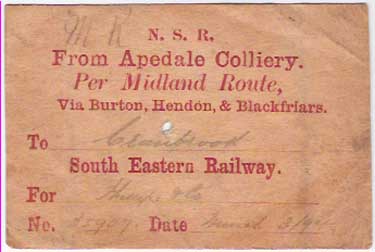 M R
N. S. R.
From Apedale Colliery.
Per Midland Route,
Via Burton, Hendon, & Blackfriars.
To Cranbrook
South Eastern Railway.
For & Co
No. Date